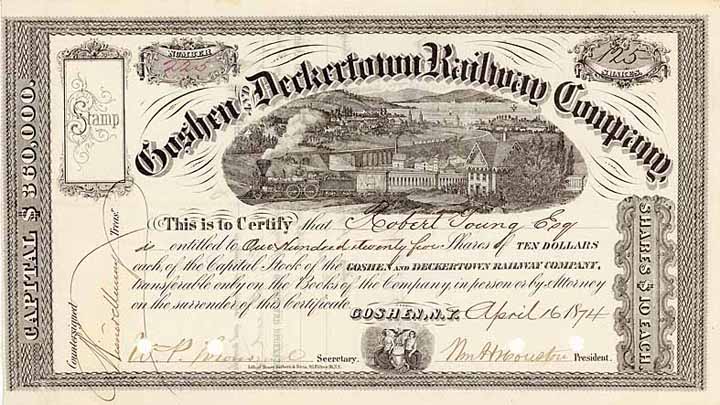 NUMBER
125
SHARES.
Stamp
Goshen AND Deckertown Railway Company,
CAPITAL $360,000.
SHARES $10 EACH.
This is to Certify that Robert Young Esq
is entitled to One hundred & twenty five Shares of TEN DOLLARS
each, of the Capital Stock of the GOSHEN AND DECKERTOWN RAILWAY COMPANY,
transferable only on the Books of the Company, in person or by Attorney
on the surrender of this Certificate.
GOSHEN, N.Y. April 16 1874
Countersigned
Treasr.
Secretary.
Wm H Houston President.